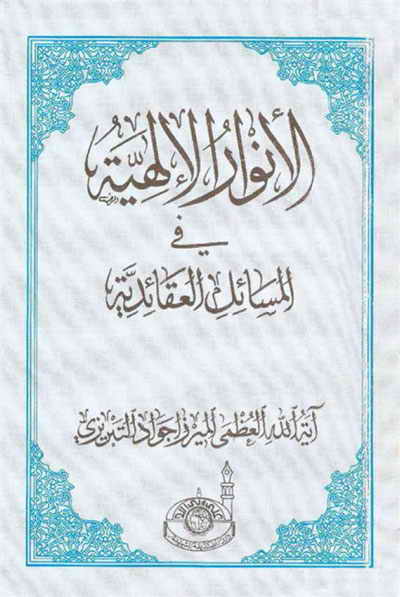 الأنوار الإلهية
في
المسائل العقائدية
آية الله العظمى الميرزا جواد التبريزي